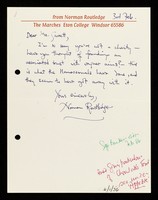 from Norman Routledge
The Marches Eton College Windsor 65586
3rd Feb.
Dear Mr. Jarrett,
I'm so sorry you're not a charity —
have you thought of founding an
associated trust with similar aims? This
is what the Homosexuals have done and
they seem to have got away with it.
Yours sincerely,
Norman Routledge